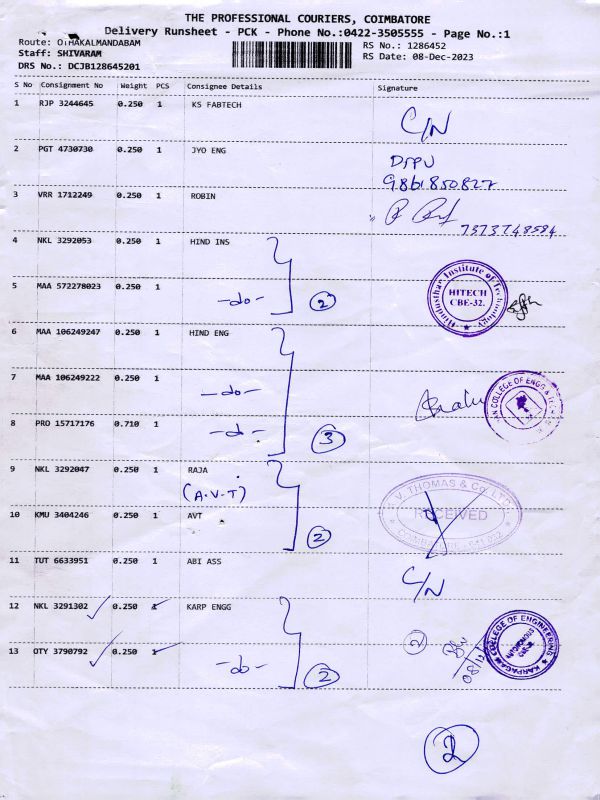 THE PROFESSIONAL COURIERS, COIMBATORE
Delivery Runsheet - PCK - Phone No.:0422-3505555 - Page No.:1
Route: OTHAKALMANDABAM
RS No.: 1286452
Staff: SHIVARAM
RS Date: 08-Dec-2023
DRS No.: DCJB128645201
S No Consignment No Weight PCS Consignee Details Signature
1 RJP 3244645 0.250 1 KS FABTECH
C/N
2 PGT 4730730 0.250 1 JYO ENG
9861850827
3 VRR 1712249 0.250 1 ROBIN
7373748584
4 NKL 3292053 0.250 1 HIND INS
Hindusthan Institute of Technology
HITECH
CBE-32.
5 MAA 572278023 0.250 1
-do- 2
6 MAA 106249247 0.250 1 HIND ENG
7 MAA 106249222 0.250 1
-do-
COLLEGE OF ENGG &
8 PRO 15717176 0.710 1
-do- 3
9 NKL 3292047 0.250 1 RAJA
(A.V.T)
V. THOMAS & Co. LTD.
RECEIVED
COIMBATORE - 641 032
10 KMU 3404246 0.250 1 AVT
2
11 TUT 6633951 0.250 1 ABI ASS
C/N
12 NKL 3291302 0.250 1 KARP ENGG
KARPAGAM COLLEGE OF ENGINEERING
AUTONOMOUS
2
13 OTY 3790792 0.250 1
-do- 2
2